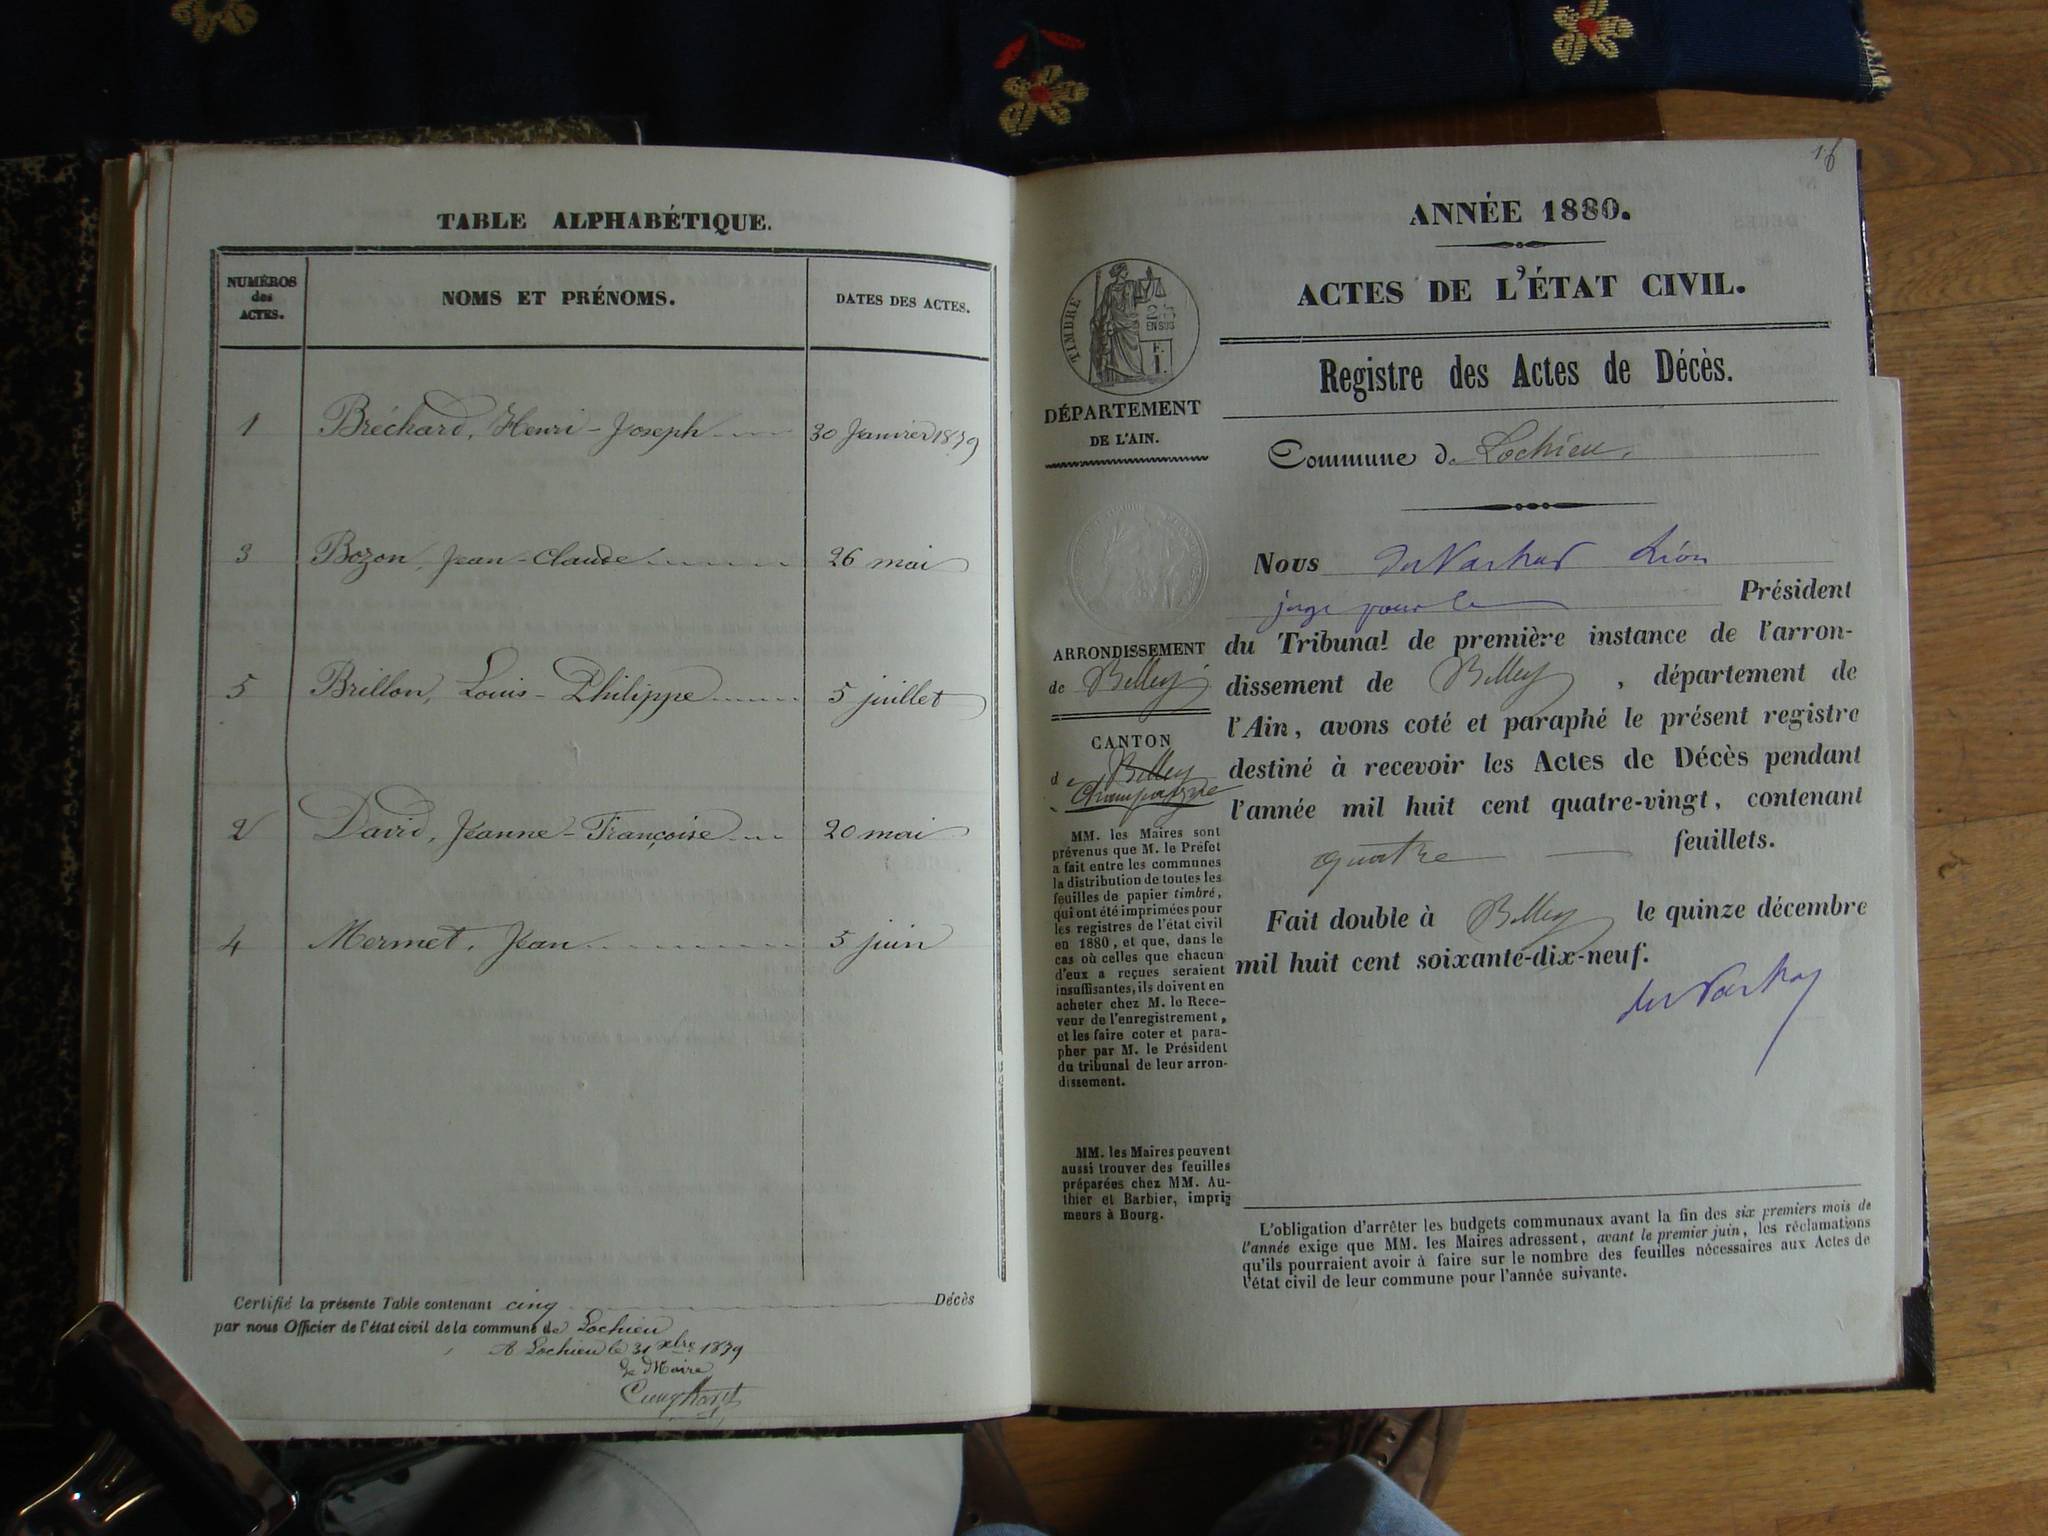 TABLE ALPHABÉTIQUE.
NUMÉROS
des
ACTES.
NOMS ET PRÉNOMS.
DATES DES ACTES.
1 Bréchard, Henri-Joseph 30 Janvier 1879
3 Bozon, Jean-Claude 26 mai
5 Brillon, Louis-Philippe 5 juillet
2 David, Jeanne-Françoise 20 mai
4 Mermet, Jean 5 juin
Certifié la présente Table contenant cinq Décès
par nous Officier de l'état civil de la commune de Lochieu
A Lochieu le 31 xbre 1879
Le Maire
16
ANNÉE 1880.
ACTES DE L'ÉTAT CIVIL.
TIMBRE
25
EN SUS
F.
I.
Registre des Actes de Décès.
DÉPARTEMENT
DE L'AIN.
Commune de Lochieu.
Nous Léon
juge pour le Président
du Tribunal de première instance de l'arron-
dissement de Belley, département de
l'Ain, avons coté et paraphé le présent registre
destiné à recevoir les Actes de Décès pendant
l'année mil huit cent quatre-vingt, contenant
quatre feuillets.
Fait double à Belley le quinze décembre
mil huit cent soixante-dix-neuf.
ARRONDISSEMENT
de Belley
CANTON
de Belley
Champagne
MM. les Maires sont
prévenus que M. le Préfet
a fait entre les communes
la distribution de toutes les
feuilles de papier timbré,
qui ont été imprimées pour
les registres de l'état civil
en 1880, et que, dans le
cas où celles que chacun
d'eux a reçues seraient
insuffisantes, ils doivent en
acheter chez M. le Rece-
veur de l'enregistrement,
et les faire coter et para-
pher par M. le Président
du tribunal de leur arron-
dissement.
MM. les Maires peuvent
aussi trouver des feuilles
préparées chez MM. Au-
thier et Barbier, impri-
meurs à Bourg.
L'obligation d'arrêter les budgets communaux avant la fin des six premiers mois de
l'année exige que MM. les Maires adressent, avant le premier juin, les réclamations
qu'ils pourraient avoir à faire sur le nombre des feuilles nécessaires aux Actes de
l'état civil de leur commune pour l'année suivante.